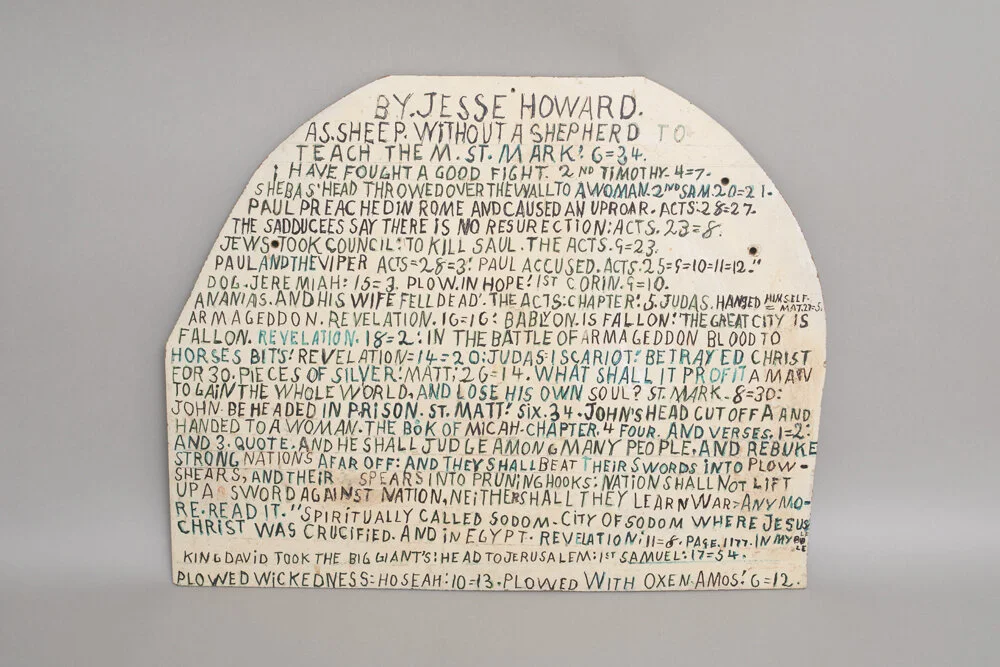 BY. JESSE HOWARD.
AS. SHEEP. WITHOUT A SHEPHERD TO
TEACH THEM. ST. MARK: 6=34.
I HAVE FOUGHT A GOOD FIGHT. 2ND TIMOTHY. 4=7.
SHEBAS' HEAD THROWED OVER THE WALL TO A WOMAN. 2ND SAM. 20=21.
PAUL PREACHED IN ROME AND CAUSED AN UPROAR. ACTS: 28=27.
THE SADDUCEES SAY THERE IS NO RESURECTION: ACTS. 23=8.
JEWS TOOK COUNCIL: TO KILL SAUL. THE ACTS. 9=23.
PAUL AND THE VIPER ACTS=28=3: PAUL ACCUSED. ACTS. 25=9=10=11=12."
DOG. JEREMIAH: 15=3. PLOW. IN HOPE! 1ST CORIN. 9=10.
ANANIAS. AND HIS WIFE FELL DEAD'. THE ACTS: CHAPTER: 5. JUDAS. HANGED HIMSELF. = MAT. 27=5.
ARMAGEDDON. REVELATION. 16=16: BABLYON. IS FALLON: "THE GREAT CITY IS
FALLON. REVELATION. 18=2: IN THE BATTLE OF ARMAGEDDON BLOOD TO
HORSES BITS: REVELATION=14=20: JUDAS ISCARIOT: BETRAYED CHRIST
FOR 30. PIECES OF SILVER: MATT: 26=14. WHAT SHALL IT PROFIT A MAN
TO GAIN THE WHOLE WORLD, AND LOSE HIS OWN SOUL? ST. MARK. 8=30:
JOHN BEHEADED IN PRISON. ST. MATT: SIX. 34. JOHN'S HEAD CUT OFF A AND
HANDED TO A WOMAN. THE BOK OF MICAH. CHAPTER. 4 FOUR. AND VERSES. 1=2:
AND 3. QUOTE. AND HE SHALL JUDGE AMONG MANY PEOPLE, AND REBUKE
STRONG NATIONS AFAR OFF: AND THEY SHALL BEAT THEIR SWORDS INTO PLOW-
SHEARS, AND THEIR SPEARS INTO PRUNING HOOKS: NATION SHALL NOT LIFT
UP A SWORD AGAINST NATION, NEITHER SHALL THEY LEARN WAR= ANY MO-
RE. READ IT. "SPIRITUALLY CALLED SODOM. CITY OF SODOM WHERE JESUS
CHRIST WAS CRUCIFIED. AND IN EGYPT. REVELATION: 11=8. PAGE. 1177. IN MY BIBLE
KING DAVID TOOK THE BIG GIANT'S: HEAD TO JERUSALEM: 1ST SAMUEL: 17=54.
PLOWED WICKEDNESS= HOSEAH: 10=13. PLOWED WITH OXEN. AMOS: 6=12.